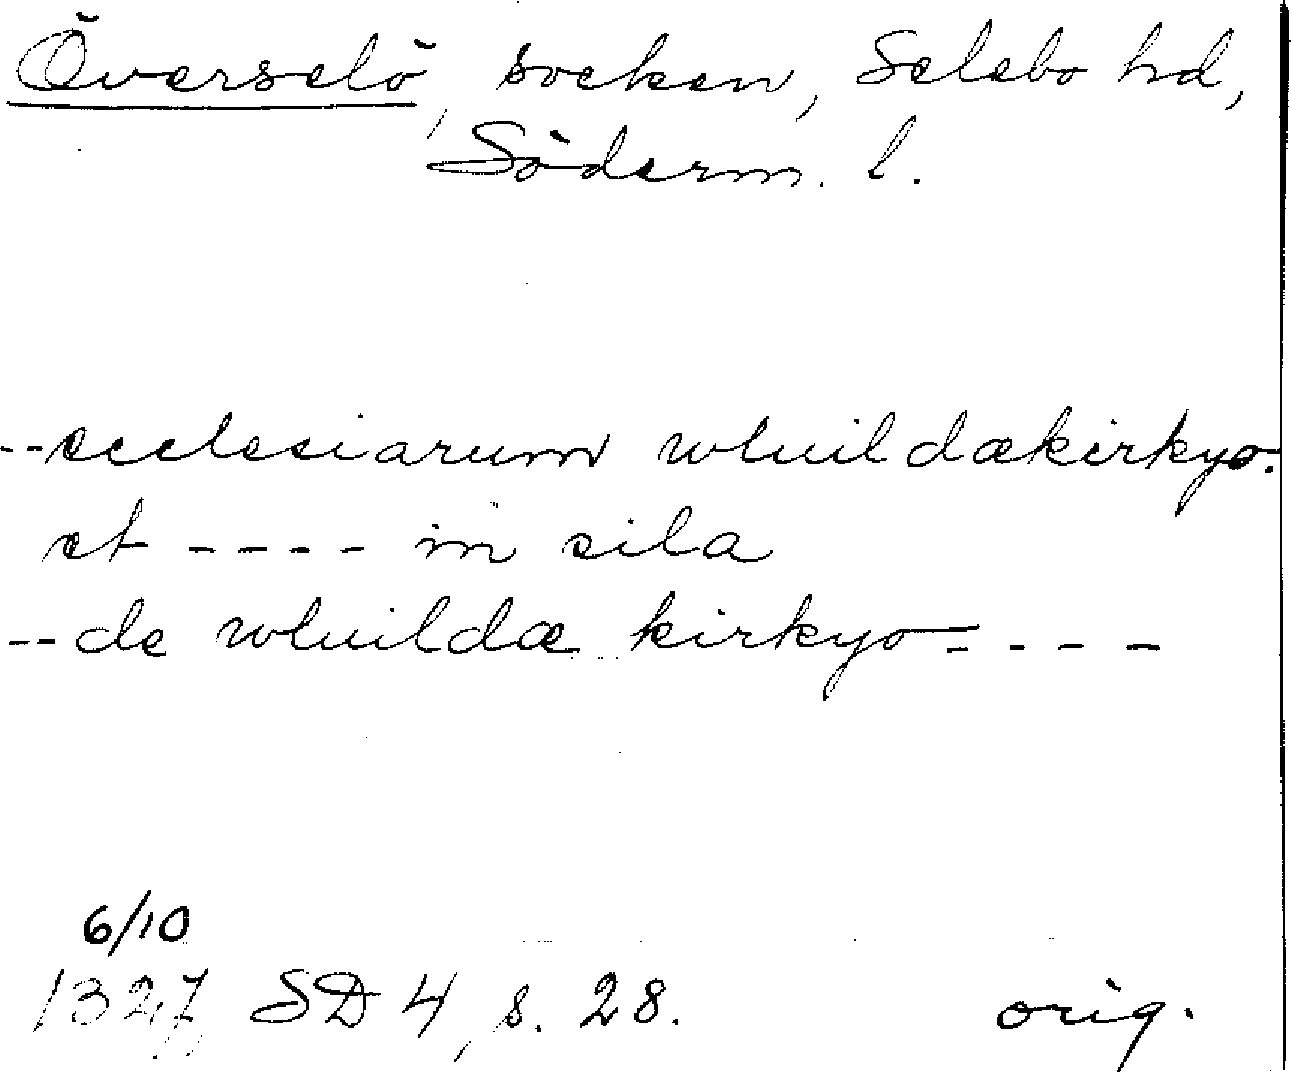 Överselö, socken, Selebo hd,
Söderm. l.
--ecclesiarum wluildækirkyo.
et ---- in sila
--de wluildæ kirkyo----
6/10
1327, SD 4, s. 28. orig.